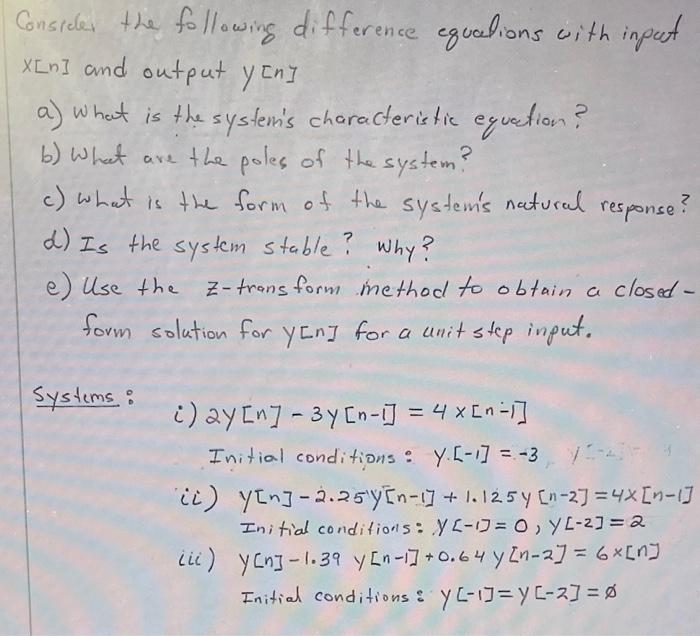 Consider the following difference equations with input
x[n] and output y[n]
a) What is the system's characteristic equation?
b) What are the poles of the system?
c) What is the form of the system's natural response?
d) Is the system stable? Why?
e) Use the z-transform method to obtain a closed-
form solution for y[n] for a unit step input.
Systems:
i) 2y[n] - 3y[n-1] = 4x[n-1]
Initial conditions: y[-1] = -3
ii) y[n] - 2.25y[n-1] + 1.125y[n-2] = 4x[n-1]
Initial conditions: y[-1] = 0, y[-2] = 2
iii) y[n] - 1.39 y[n-1] + 0.64 y[n-2] = 6x[n]
Initial conditions: y[-1] = y[-2] = Ø